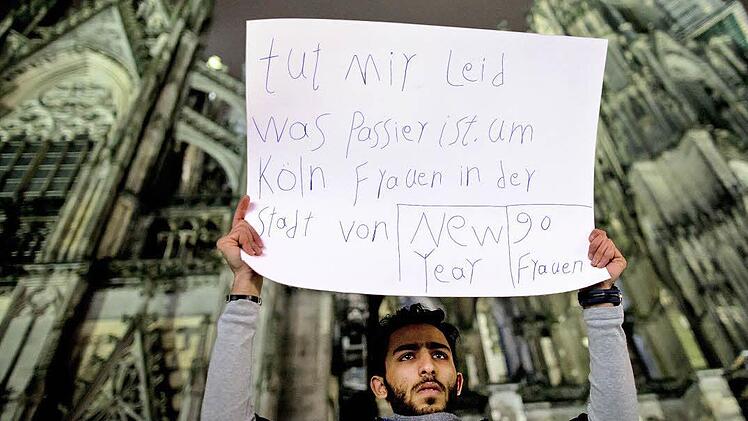 tut Mir Leid
was Passier ist. um
Köln Frauen in der
Stadt von New 90
Year Frauen